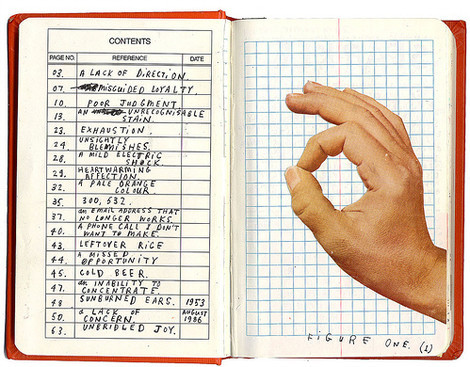 CONTENTS
PAGE NO. REFERENCE DATE
03. A LACK OF DIRECTION.
07. MISGUIDED LOYALTY.
10. POOR JUDGMENT
13. AN UNRECOGNISABLE
STAIN.
23. EXHAUSTION.
24. UNSIGHTLY
BLEMISHES.
28. A MILD ELECTRIC
SHOCK.
29. HEARTWARMING
AFFECTION.
32. A PALE ORANGE
COLOUR.
35. 300,532.
37. an EMAIL ADDRESS THAT
NO LONGER WORKS
40. A PHONE CALL I DON'T
WANT TO MAKE.
43. LEFTOVER RICE
44. A MISSED
OPPORTUNITY
45. COLD BEER.
47. an INABILITY TO
CONCENTRATE.
48 SUNBURNED EARS. 1953
50. a LACK OF
CONCERN. AUGUST
1986
63. UNBRIDLED JOY.
FIGURE ONE. (1)